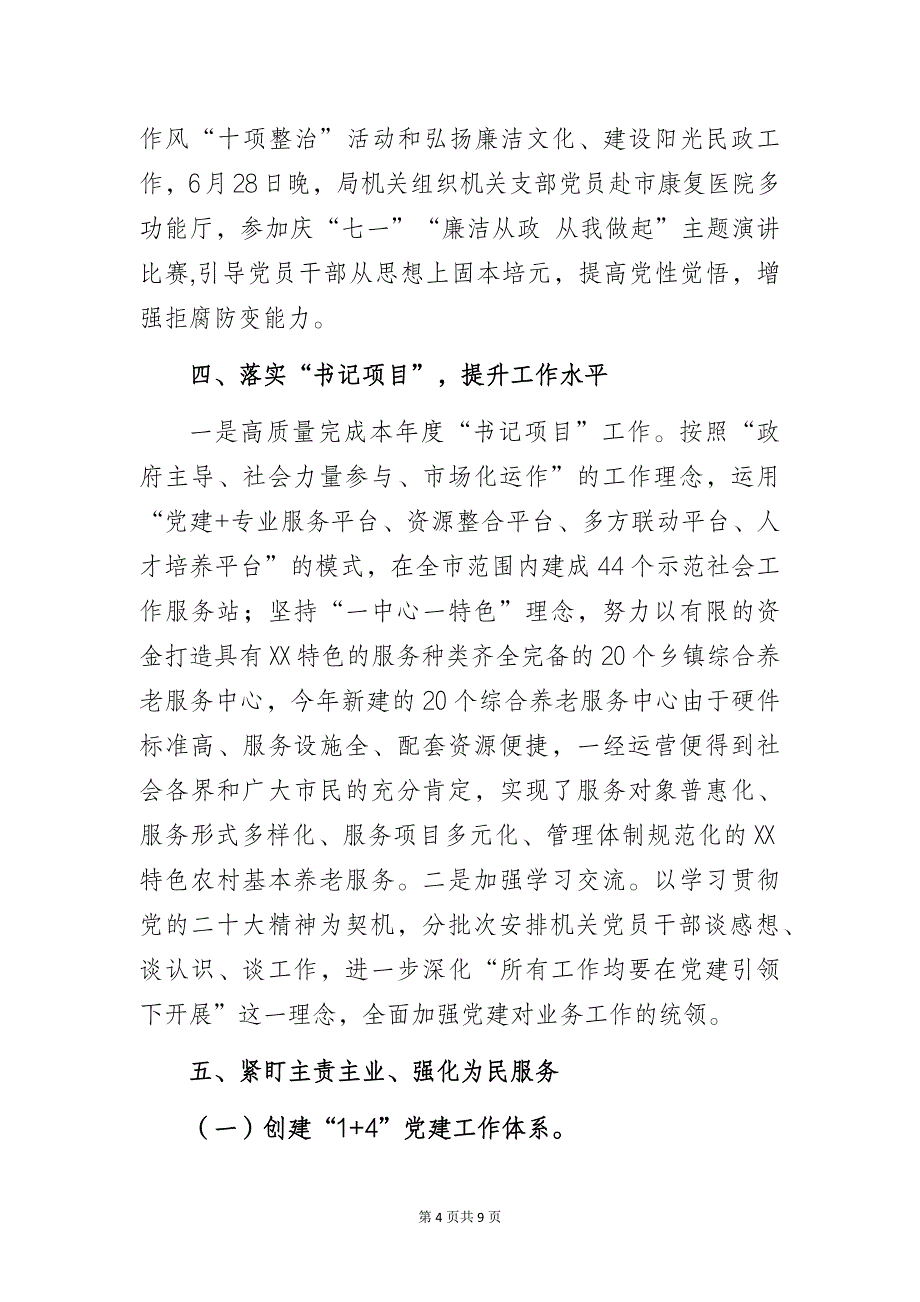 作风“十项整治”活动和弘扬廉洁文化、建设阳光民政工
作，6月28日晚，局机关组织机关支部党员赴市康复医院多
功能厅，参加庆“七一”“廉洁从政 从我做起”主题演讲
比赛,引导党员干部从思想上固本培元，提高党性觉悟，增
强拒腐防变能力。
四、落实“书记项目”，提升工作水平
一是高质量完成本年度“书记项目”工作。按照“政
府主导、社会力量参与、市场化运作”的工作理念，运用
“党建+专业服务平台、资源整合平台、多方联动平台、人
才培养平台”的模式，在全市范围内建成44个示范社会工
作服务站；坚持“一中心一特色”理念，努力以有限的资
金打造具有XX特色的服务种类齐全完备的20个乡镇综合养
老服务中心，今年新建的20个综合养老服务中心由于硬件
标准高、服务设施全、配套资源便捷，一经运营便得到社
会各界和广大市民的充分肯定，实现了服务对象普惠化、
服务形式多样化、服务项目多元化、管理体制规范化的XX
特色农村基本养老服务。二是加强学习交流。以学习贯彻
党的二十大精神为契机，分批次安排机关党员干部谈感想、
谈认识、谈工作，进一步深化“所有工作均要在党建引领
下开展”这一理念，全面加强党建对业务工作的统领。
五、紧盯主责主业、强化为民服务
（一）创建“1+4”党建工作体系。
第 4 页共 9 页